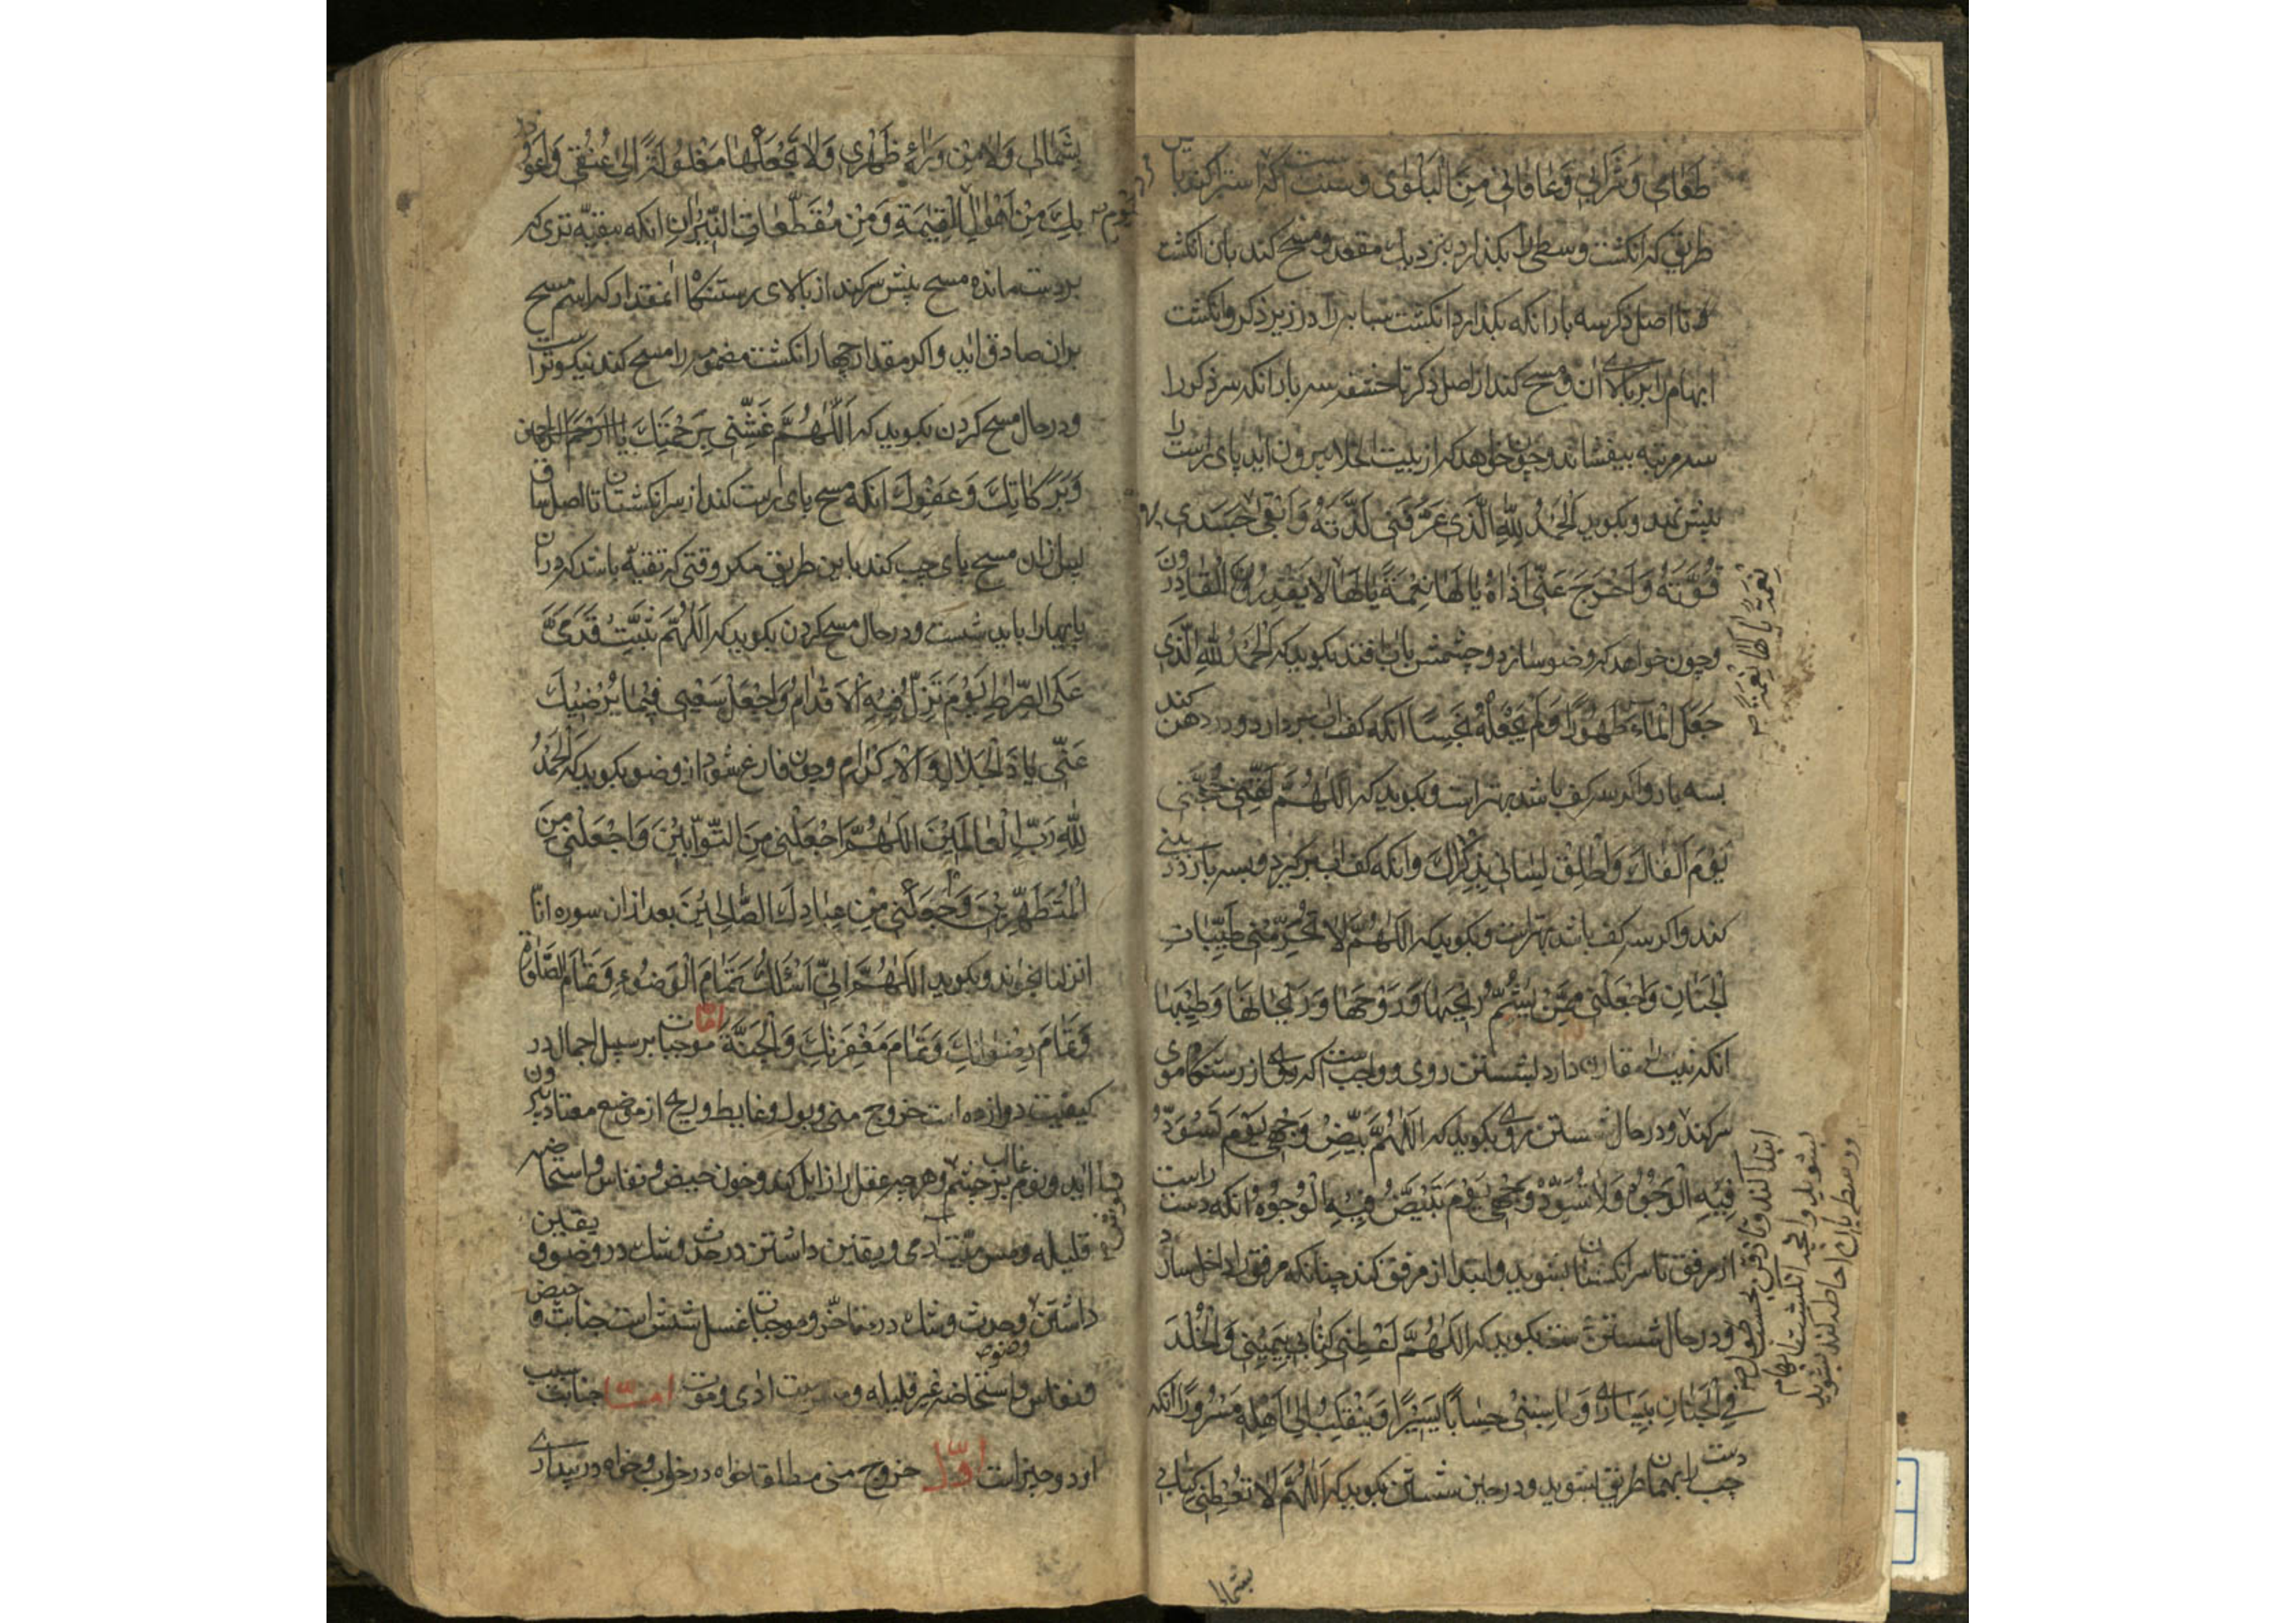 طَعَامِی وَ شَرَابِی وَ عَافَانِی مِنَ الْبَلْوٰی و سنت است که استبرا کند باین
طریق که انکشت وسطی را بکذارد بنزدیك مقعد و مسح کند بان انکشت
تا اصل ذکر سه بار انکه بکذارد انکشت سبابه را در زیر ذکر و انکشت
ابهام را بر بالای ان و مسح کند از اصل ذکر تا حشفه سه بار انکه سر ذکر را
سه مرتبه بیفشاند و چون خواهد که از بیت الخلا بیرون اید پای راست را
پیش نهد و بکوید اَلْحَمْدُ لِلّٰهِ الَّذِی عَرَّفَنِی لَذَّتَهُ وَ اَبْقٰی فِی جَسَدِی
قُوَّتَهُ وَ اَخْرَجَ عَنِّی اَذَاهُ یَا لَهَا نِعْمَةً یَا لَهَا لَا یَقْدِرُ الْقَادِرُونَ
و چون خواهد که وضو سازد و چشمش باب افتد بکوید که اَلْحَمْدُ لِلّٰهِ الَّذِی
جَعَلَ الْمَاءَ طَهُورًا وَ لَمْ یَجْعَلْهُ نَجِسًا انکه کف اب بردارد و در دهن کند
بسه بار و اکر سه کف باشد بهتر است و بکوید که اَللّٰهُمَّ لَقِّنِی حُجَّتِی
یَوْمَ اَلْقَاكَ وَ اَطْلِقْ لِسَانِی بِذِکْرِكَ و انکه کف اب برکیرد و بسه بار در بینی
کند و اکر سه کف باشد بهتر است و بکوید که اَللّٰهُمَّ لَا تُحَرِّمْنِی طَیِّبَاتِ
الْجِنَانِ وَ اجْعَلْنِی مِمَّنْ یَشُمُّ رِیحَهَا وَ رَوْحَهَا وَ رَیْحَانَهَا وَ طِیبَهَا
انکه نیت را مقارن دارد بشستن روی و واجب است که روی از رستنکاه موی
سر کند و در حال شستن روی بکوید که اَللّٰهُمَّ بَیِّضْ وَجْهِی یَوْمَ تَسْوَدُّ
فِیهِ الْوُجُوهُ وَ لَا تُسَوِّدْ وَجْهِی یَوْمَ تَبْیَضُّ فِیهِ الْوُجُوهُ انکه دست راست
از مرفق تا سر انکشتان بشوید و ابتدا از مرفق کند چنانکه مرفق را داخل سازد
و در حال شستن دست بکوید که اَللّٰهُمَّ اَعْطِنِی کِتَابِی بِیَمِینِی وَ الْخُلْدَ
فِی الْجِنَانِ بِیَسَارِی وَ حَاسِبْنِی حِسَابًا یَسِیرًا وَ یَنْقَلِبُ اِلٰی اَهْلِهِ مَسْرُورًا انکه
دست چپ را بهمان طریق بشوید و در حین شستن بکوید که اَللّٰهُمَّ لَا تُعْطِنِی کِتَابِی
بشمالی
بِشِمَالِی وَ لَا مِنْ وَرَاءِ ظَهْرِی وَ لَا تَجْعَلْهَا مَغْلُولَةً اِلٰی عُنُقِی وَ اَعُوذُ
بِكَ مِنْ اَهْوَالِ الْقِیٰمَةِ وَ مِنْ مُقَطَّعَاتِ النِّیرَانِ انکه ببقیه تری که
بر دست مانده مسح پیش سر کند از بالای رستنکاه انمقدار که اسم مسح
بران صادق اید و اکر مقدار چهار انکشت مضمومه را مسح کند نیکوتر است
و در حال مسح کردن بکوید که اَللّٰهُمَّ غَشِّنِی بِرَحْمَتِكَ یا ارحم الراحمین
وَ بَرَکَاتِكَ وَ عَفْوِكَ انکه مسح پای راست کند از سر انکشتان تا اصل ساق
پس از ان مسح پای چپ کند باین طریق مکر وقتی که تقیه باشد که دران
پایها را باید شست و در حال مسح کردن بکوید که اَللّٰهُمَّ ثَبِّتْ قَدَمَیَّ
عَلَی الصِّرَاطِ یَوْمَ تَزِلُّ فِیهِ الْاَقْدَامُ وَ اجْعَلْ سَعْیِی فِیمَا یُرْضِیكَ
عَنِّی یَا ذَا الْجَلَالِ وَ الْاِکْرَامِ و چون فارغ شود از وضو بکوید که اَلْحَمْدُ
لِلّٰهِ رَبِّ الْعَالَمِینَ اَللّٰهُمَّ اجْعَلْنِی مِنَ التَّوَّابِینَ وَ اجْعَلْنِی مِنَ
الْمُتَطَهِّرِینَ وَ اجْعَلْنِی مِنْ عِبَادِكَ الصَّالِحِینَ بعد ازان سوره انّا
انزلنا بخواند و بکوید اَللّٰهُمَّ اِنِّی اَسْئَلُكَ تَمَامَ الْوُضُوءِ وَ تَمَامَ الصَّلٰوةِ
وَ تَمَامَ رِضْوَانِكَ وَ تَمَامَ مَغْفِرَتِكَ وَ الْجَنَّةَ امّا موجبات بر سبیل اجمال در
کیفیت دوازده است خروج منی و بول و غایط و ریح از موضع معتاد بیرون
اید و نوم غالب بر چشم و هر چه عقل را زایل کند و خون حیض و نفاس و استحاضه
قلیله و مس میّت ادمی و یقین داشتن در حدث و شك در وضو و یقین
داشتن وحدث و شك در متاخّر و موجبات غسل شش است جنابت و حیض
و نفاس و استحاضه غیر قلیله و مس میت ادمی و موت امّا سبب جنابت
از دو چیز است اوّل خروج منی مطلقا خواه در خواب و خواه در بیداری